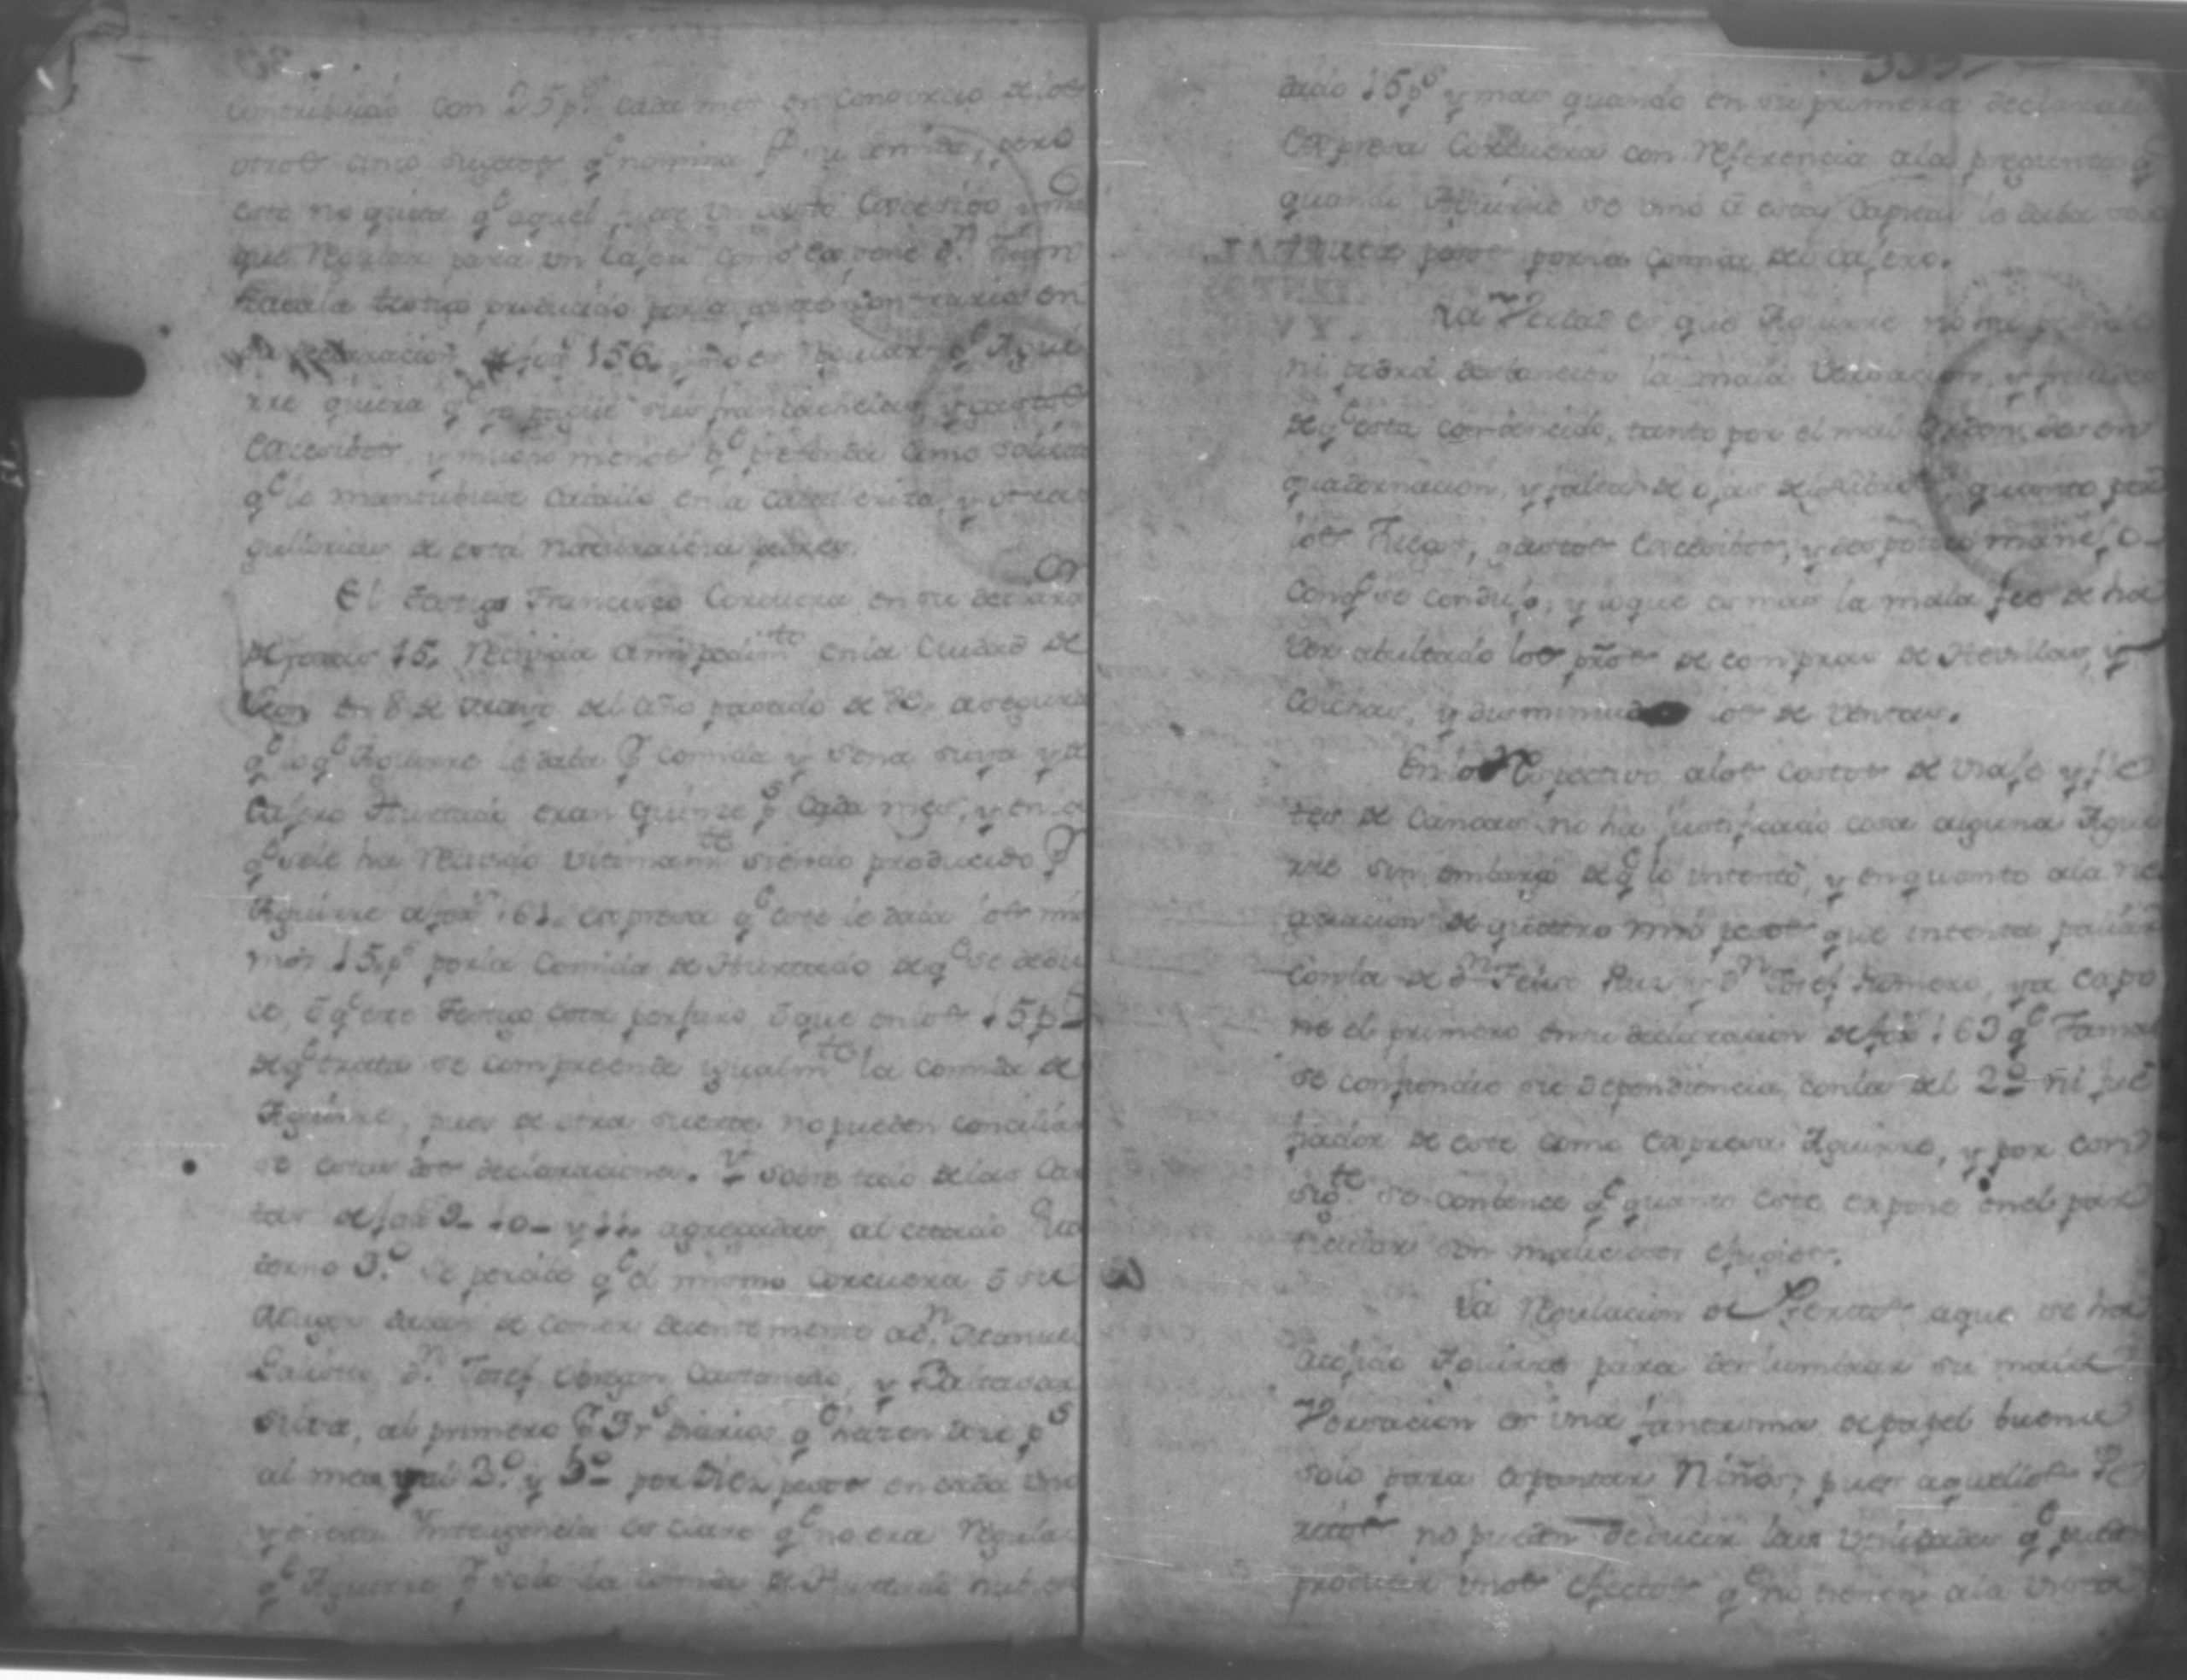 contribuido con 25 p.s cada mes en consorcio de los
otros cinco sugetos q.e nomina p.r su comida, pero
esto no quita q.e aquel fuese un gasto excesivo y mas
que regular para un Cajero como expone d.n Juan
testigo producido por la parte contraria en
su declaracion de foxas 156. y no es regular q.e Aguir
rre quiera q.e yo pague sus francachelas, y gastos
excesivos, y mucho menos q.e pretenda como solicita
q.e le mantubiese Caballo en la Caballeriza, y otras
gullorias de esta naturaleza
El testigo Francisco Corcuera en su declara
de foxas 15. recivida a mi pedim.to en la Ciudad de
Leon en 8 de Mayo del año pasado de 80, asegura
q.e lo q.e Aguirre le daba p.r comida y sena suya y de
Cajero Hurtado eran quinse p.s cada mes, y en la
q.e se le ha recivido ultimam.te siendo producido p.r
Aguirre a fox.s 161. expresa q.e este le daba los mis
mos 15 p.s por la comida de Hurtado de q.e se dedu
ce, ó q.e este testigo esta perjuro, ó que en los 15 p.s
de q.e trata se compreende igualm.te la comida de
Aguirre, pues de otra suerte no pueden conciliar
se estas dos declaraciones. Y sobre todo de las Car
tas de fox.s 9_ 10_ y 11. agregadas al citado Qua
derno 3.o se percibe q.e el mismo Corcuera ó su
Muger daban de comer desentemente a d.n Manuel
d.n Josef Castaneda, y Baltasar
Silva, al primero p.r 3 r.s diarios q.e hazen onse p.s
al mes y al 2.o y 3.o por Diez pesos en cada uno
y en esta Inteligencia es claro q.e no era regular
q.e Aguirre p.r solo la comida de Hurtado hubiese
dado 15 p.s y mas quando en su primera declaracion
expresa Corcuera con referencia a la pregunta q.e
quando Aguirre se vino á esta Capital le daba solo
pesos por la comida del Cajero.
La Verdad es que Aguirre no me
ni podrá desvanecer la mala versacion, y
de q.e esta convencido, tanto por el mal orden, des en
quadernacion, y falta de ojas de Libros, quanto por
los Juegos, gastos excesivos, y despotico manejo
con q.e se condujo, y lo que es mas la mala fee de ha
ver abultado los pr.os de compras de Hevillas, y
Colchas, y disminuido los de Ventas.
En lo respectivo a los costos de viaje y fle
tes de Cargas no ha justificado cosa alguna Agui
rre sin embargo de q.e lo intentó, y en quanto a la ne
gociacion de quatro mil pesos que intenta paliar
con la de d.n Felix Ruiz y d.n Josef Romero, ya expo
ne el primero en su declaracion de fox.s 163 q.e Jamas
se comprendio su dependiencia con la del 2.o ni fue
fiador de este como expresa Aguirre, y por con
sig.te se convence q.e quanto este expone en el par
ticular son maliciosos efugios.
La regulacion de Peritos a que se ha
acojido Aguirre para deslumbrar su mala
Versacion es una fantasma de papel buena
solo para espantar Niños, pues aquellos Pe
ritos no pueden deducir las Utilidades q.e puden
producir unos efectos q.e no tienen a la vista